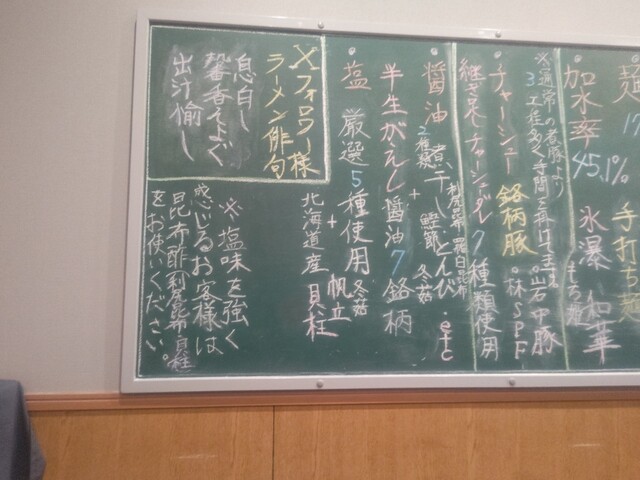 麺
手打ち麺
加水率45.1% 氷瀑 和華
もち姫
※通常の煮豚より
3工程多く手間を掛けてます
・チャーシュー 銘柄豚 ・岩中豚
・林SPF
継ぎ足しチャーシューダレ7種類使用
・醤油 煮干し 鰹節 どんび・etc
2種類
利尻昆布 羅白昆布
冬菇
+
半生がえし醤油7銘柄
・塩 厳選5種使用 帆立
冬菇
+
北海道産貝柱
Xフォロワー様
ラーメン俳句
息白し
馨呑そよぐ
出汁愉し
※塩味を強く
感じるお客様は
昆布酢(利尻昆布・貝柱)
をお使いください。